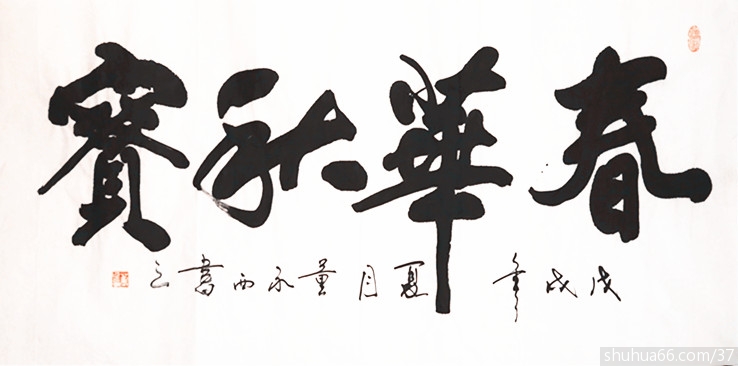 春華秋實
戊戌年夏月董永西書之
shuhua66.com/37